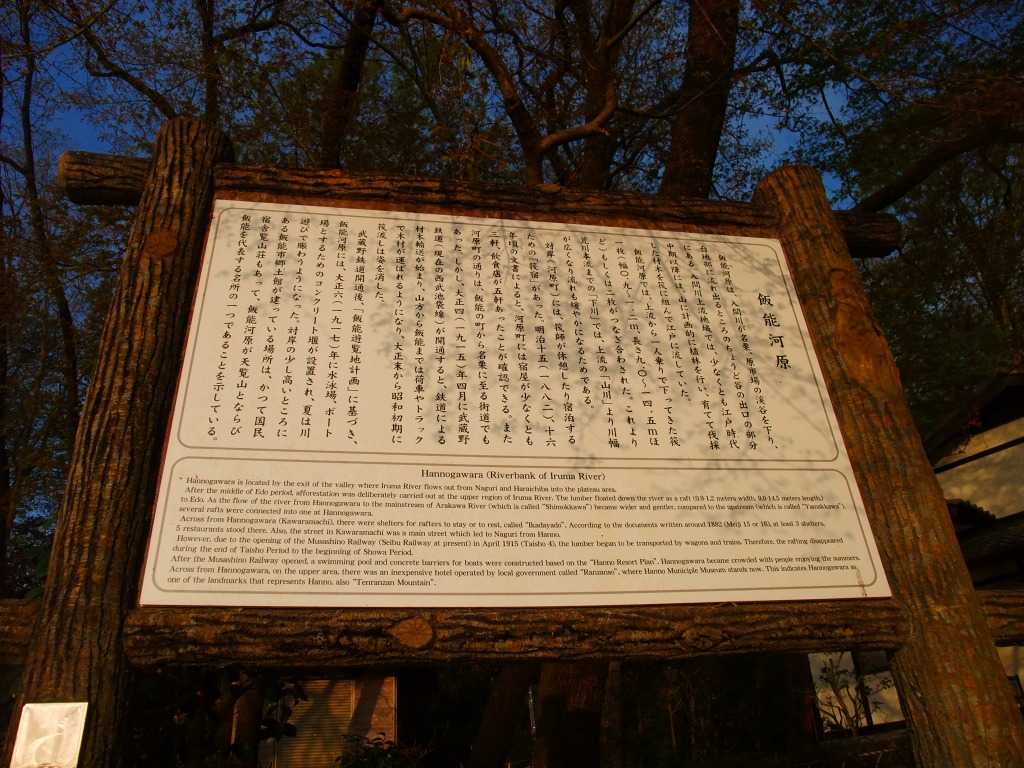 飯能河原
飯能河原は、入間川が名栗、原市場の渓谷を下り、
台地部に流れ出るところのちょうど谷の出口の部分
にある。入間川上流地域では、少なくとも江戸時代
中期以降には、山に計画的に植林を行い、育てて伐採
した材木を筏に組んで江戸に流していた。
飯能河原では、上流から一人乗りで下ってきた筏
一枚(幅〇.九〜一.二m、長さ九.〇〜一四.五mほ
ど)もしくは二枚がつなぎ合わされた。これより
荒川本流までの「下川」では、上流の「山川」より川幅
が広くなり流れも緩やかになるためである。
対岸(河原町)には、筏師が休憩したり宿泊する
ための「筏宿」があった。明治十五(一八八二)、十六
年頃の文書によると、河原町には宿屋が少なくとも
三軒、飲食店が五軒あったことが確認できる。また
河原町の通りは、飯能の町から名栗に至る街道でも
あった。しかし、大正四(一九一五)年四月に武蔵野
鉄道(現在の西武池袋線)が開通すると、鉄道による
材木輸送が始まり、山方から飯能までは荷車やトラック
で木材が運ばれるようになり、大正末から昭和初期に
筏流しは姿を消した。
武蔵野鉄道開通後、「飯能遊覧地計画」に基づき、
飯能河原には、大正六(一九一七)年に水泳場、ボート
場とするためのコンクリート堰が設置され、夏は川
遊びで賑わうようになった。対岸の少し高いところに
ある飯能市郷土館が建っている場所は、かつて国民
宿舎覧山荘もあって、飯能河原が天覧山とならび
飯能を代表する名所の一つであることを示している。
Hannogawara (Riverbank of Iruma River)
Hannogawara is located by the exit of the valley where Iruma River flows out from Naguri and Haraichiba into the plateau area.
After the middle of Edo period, afforestation was deliberately carried out at the upper region of Iruma River. The lumber floated down the river as a raft (0.9-1.2 meters width, 9.0-14.5 meters length,)
to Edo. As the flow of the river from Hannogawara to the mainstream of Arakawa River (which is called "Shimokkawa") became wider and gentler, compared to the upstream (which is called "Yamakkawa"),
several rafts were connected into one at Hannogawara.
Across from Hannogawara (Kawaramachi), there were shelters for rafters to stay or to rest, called "Ikadayado". According to the documents written around 1882 (Meiji 15 or 16), at least 3 shelters,
5 restaurants stood there. Also, the street in Kawaramachi was a main street which led to Naguri from Hanno.
However, due to the opening of the Musashino Railway (Seibu Railway at present) in April 1915 (Taisho 4), the lumber began to be transported by wagons and trains. Therefore, the rafting disappeared
during the end of Taisho Period to the beginning of Showa Period.
After the Musashino Railway opened, a swimming pool and concrete barriers for boats were constructed based on the "Hanno Resort Plan". Hannogawara became crowded with people enjoying the summers.
Across from Hannogawara, on the upper area, there was an inexpensive hotel operated by local government called "Ranzanso", where Hanno Municiple Museum stands now. This indicates Hannogawara as
one of the landmarks that represents Hanno, also "Tenranzan Mountain".